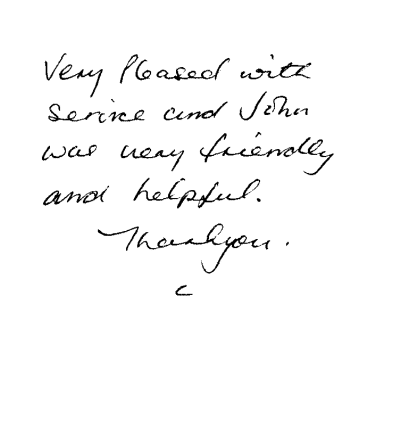 Very Pleased with
service and John
was very friendly
and helpful.
Thankyou.
c